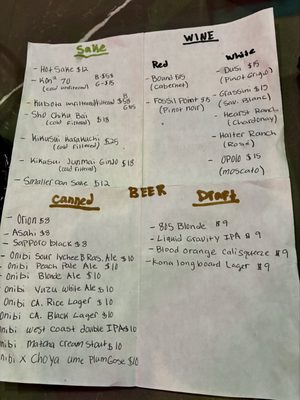 Sake
- Hot Sake $12
- Kona 70
(cold unfiltered)
- Kubota unfiltered/filtered
- Sho Chiku Bai
(cold filtered) $18
- Kikusui Karakuchi
(cold filtered) $25
- Kikusui Junmai Ginjo $18
(cold filtered)
- Smaller can Sake $12
WINE
Red
- Bound $15
(cabernet)
- Fossil Point $15
(Pinot noir)
White
- Dusi $15
(Pinot Grigio)
- Giessini $15
(Sav. Blanc)
- Hearst Ranch
(Chardonay)
- Halter Ranch
(Rosé)
- Opolo $15
(moscato)
BEER
Canned
- Orion $8
- Asahi $8
- Sapporo black $8
- Onibi Sour lychee B Ras. Ale $10
Onibi Peach Pale Ale $10
- Onibi Blonde Ale $10
Onibi Yuzu White Ale $10
Onibi CA. Rice Lager $10
Onibi CA. Black Lager $10
Onibi West coast double IPA $10
nibi Matcha Cream Stout $10
nibi X Choya Ume Plum Gose $10
Draft
- 805 Blonde $9
- Liquid Gravity IPA $9
- Blood orange Cali squeeze $9
- Kona longboard Lager $9